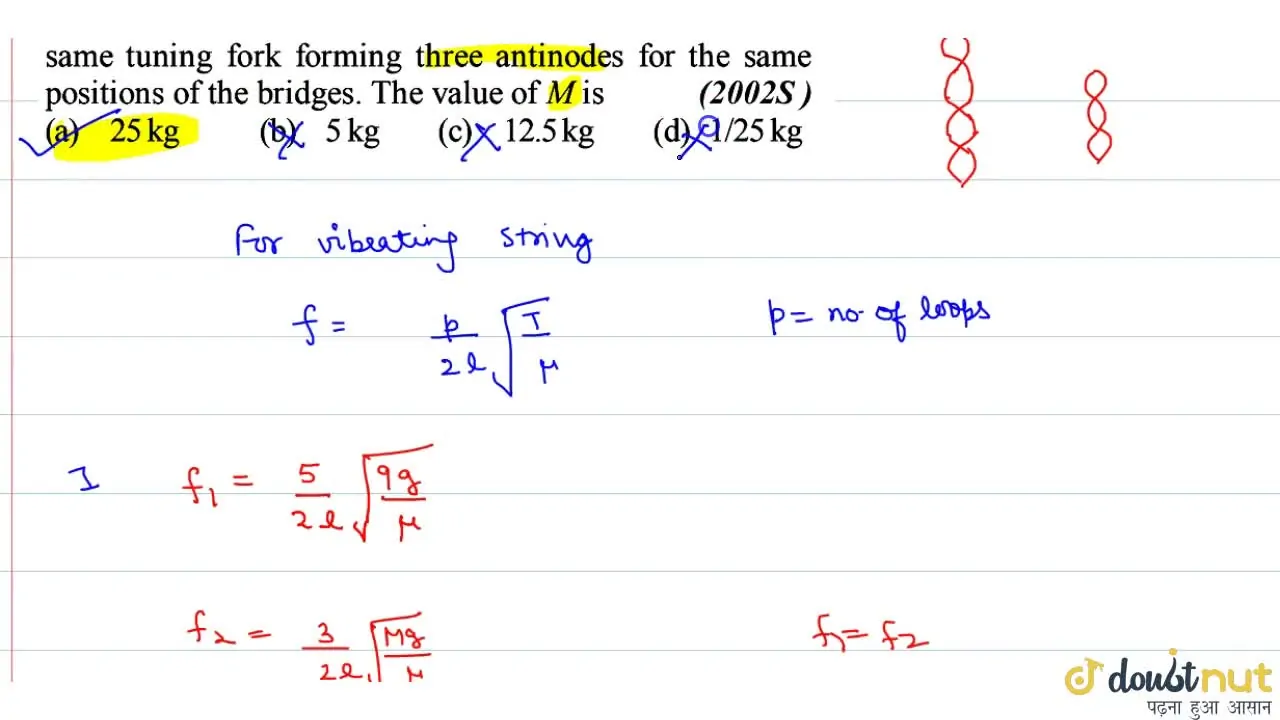 same tuning fork forming three antinodes for the same
positions of the bridges. The value of M is (2002S)
(a) 25 kg (b) 5 kg (c) 12.5 kg (d) 1/25 kg
For vibrating string
f = p/2l √T/μ p = no. of loops
I f₁ = 5/2l √9g/μ
f₂ = 3/2l √Mg/μ f₁ = f₂
doubtnut
पढ़ना हुआ आसान